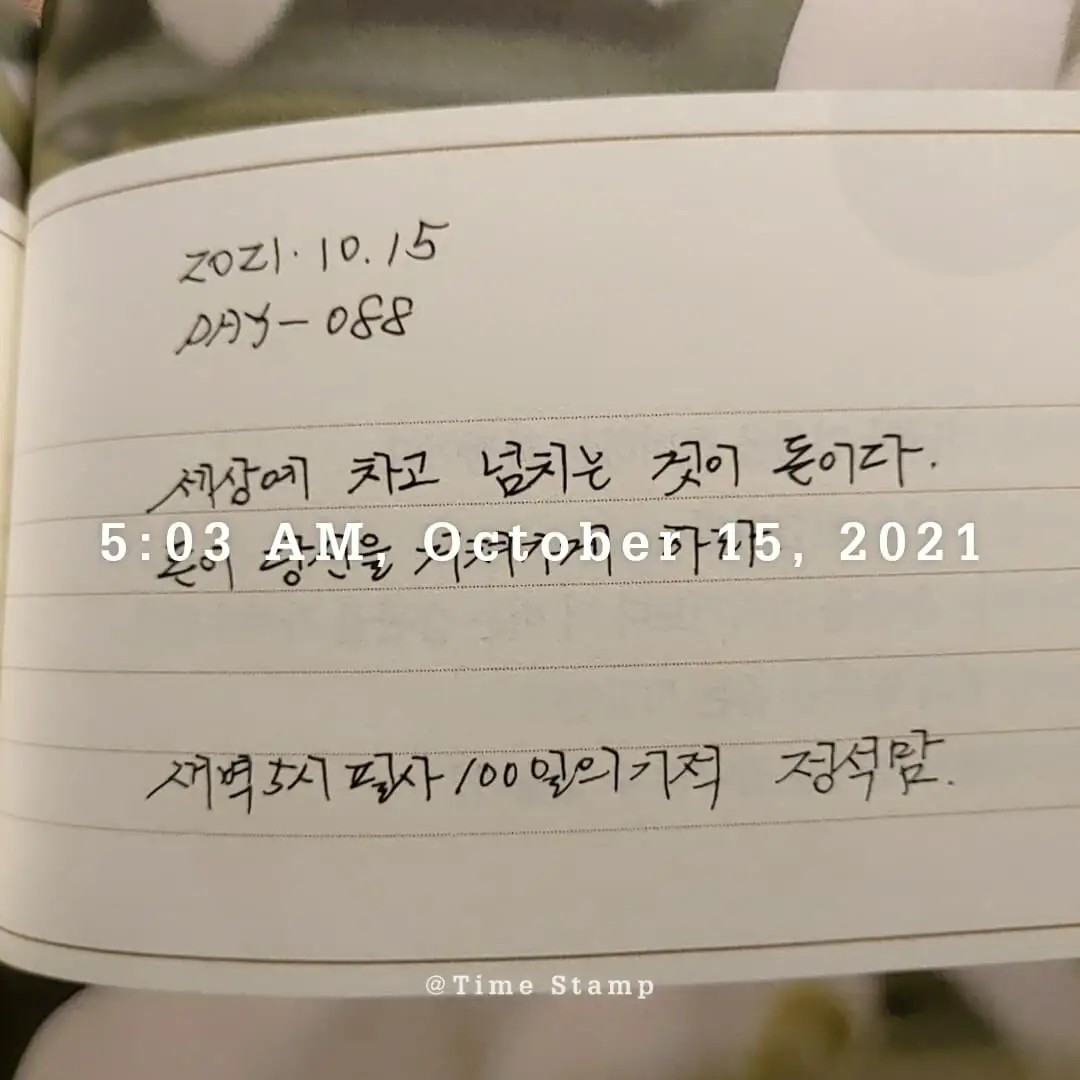 2021.10.15
DAY-088
세상에 차고 넘치는 것이 돈이다.
돈이 당신을 하라
5:03 AM, October 15, 2021
새벽5시 필사 100일의 기적 정석맘.
@Time Stamp